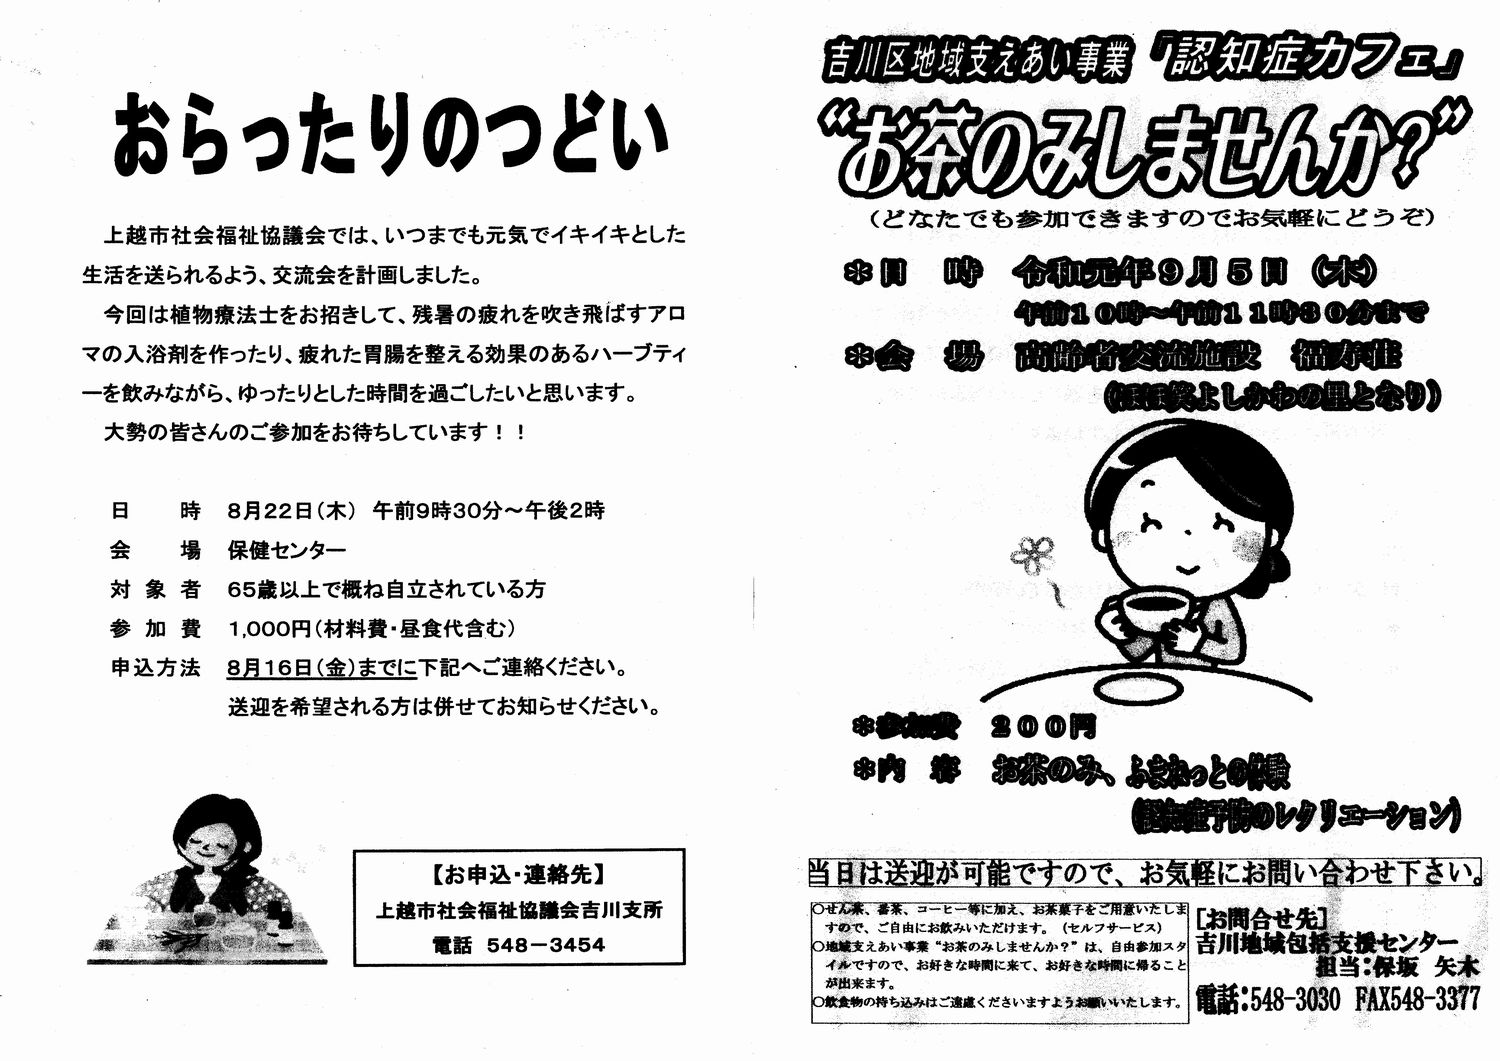 おらったりのつどい
上越市社会福祉協議会では、いつまでも元気でイキイキとした
生活を送られるよう、交流会を計画しました。
今回は植物療法士をお招きして、残暑の疲れを吹き飛ばすアロ
マの入浴剤を作ったり、疲れた胃腸を整える効果のあるハーブティ
ーを飲みながら、ゆったりとした時間を過ごしたいと思います。
大勢の皆さんのご参加をお待ちしています！！
日　時　8月22日（木）　午前9時30分～午後2時
会　場　保健センター
対象者　65歳以上で概ね自立されている方
参加費　1,000円（材料費・昼食代含む）
申込方法　8月16日（金）までに下記へご連絡ください。
送迎を希望される方は併せてお知らせください。
【お申込・連絡先】
上越市社会福祉協議会吉川支所
電話　548－3454
吉川区地域支えあい事業『認知症カフェ』
“お茶のみしませんか？”
（どなたでも参加できますのでお気軽にどうぞ）
＊日　時　令和元年９月５日（木）
午前１０時～午前１１時３０分まで
＊会　場　高齢者交流施設　福寿荘
（ほほ笑よしかわの里となり）
＊参加費　２００円
＊内　容　お茶のみ、ふまねっとの体験
（認知症予防のレクリエーション）
当日は送迎が可能ですので、お気軽にお問い合わせ下さい。
○せん茶、番茶、コーヒー等に加え、お茶菓子をご用意いたしま
すので、ご自由にお飲みいただけます。（セルフサービス）
○地域支えあい事業“お茶のみしませんか？”は、自由参加スタ
イルですので、お好きな時間に来て、お好きな時間に帰ること
が出来ます。
○飲食物の持ち込みはご遠慮くださいますようお願いいたします。
[お問合せ先]
吉川地域包括支援センター
担当：保坂　矢木
電話：548-3030　FAX548-3377